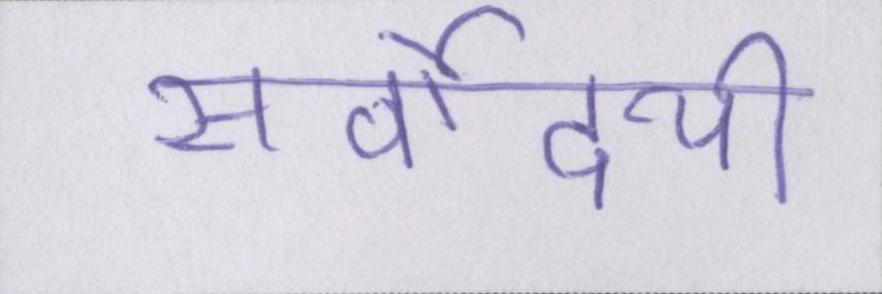 सर्वोदयी